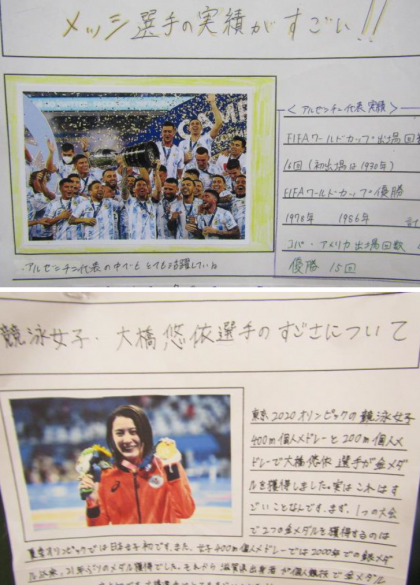 メッシ選手の実績がすごい!!
<アルゼンチン代表実績>
FIFAワールドカップ出場回
16回(初出場は1930年)
FIFAワールドカップ優勝
1978年 1986年
コパ・アメリカ出場回数
優勝 15回
アルゼンチン代表の中でもとても活躍している
競泳女子・大橋悠依選手のすごさについて
東京2020オリンピックの競泳女子
400m個人メドレーと200m個人メ
ドレーで大橋悠依選手が金メダ
ルを獲得しました。実はこれはす
ごいことなんです。まず、1つの大会
で2つの金メダルを獲得するのは
東京オリンピックでは日本女子初です。また、女子400m個人メドレーでは2000年での銀メダ
ル以来、21年ぶりのメダル獲得でした。それから滋賀県出身者が個人種目で金メダル